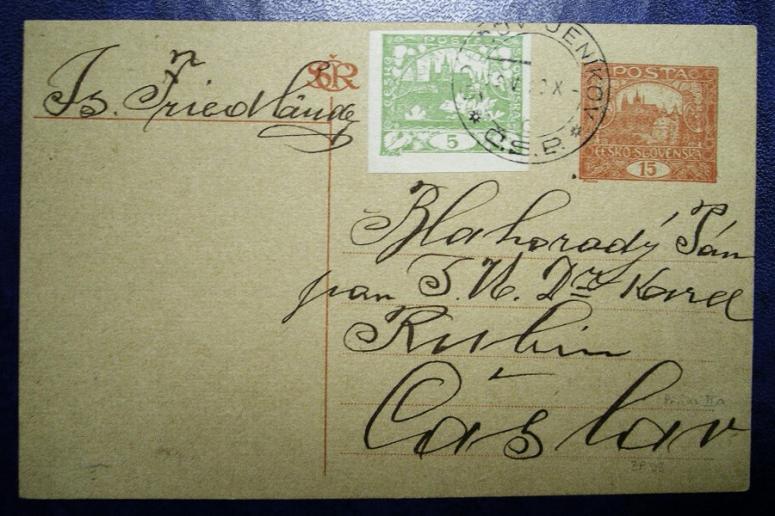 Is. Friedländer
ČSR
POSTA
ČESKO-SLOVENSKÁ
5
JENÍKOV
Č.S.P.
POSTA
ČESKO-SLOVENSKÁ
15
Blahorodý Pán
pan J.U. Dr. Karel
Rubin
Čáslav